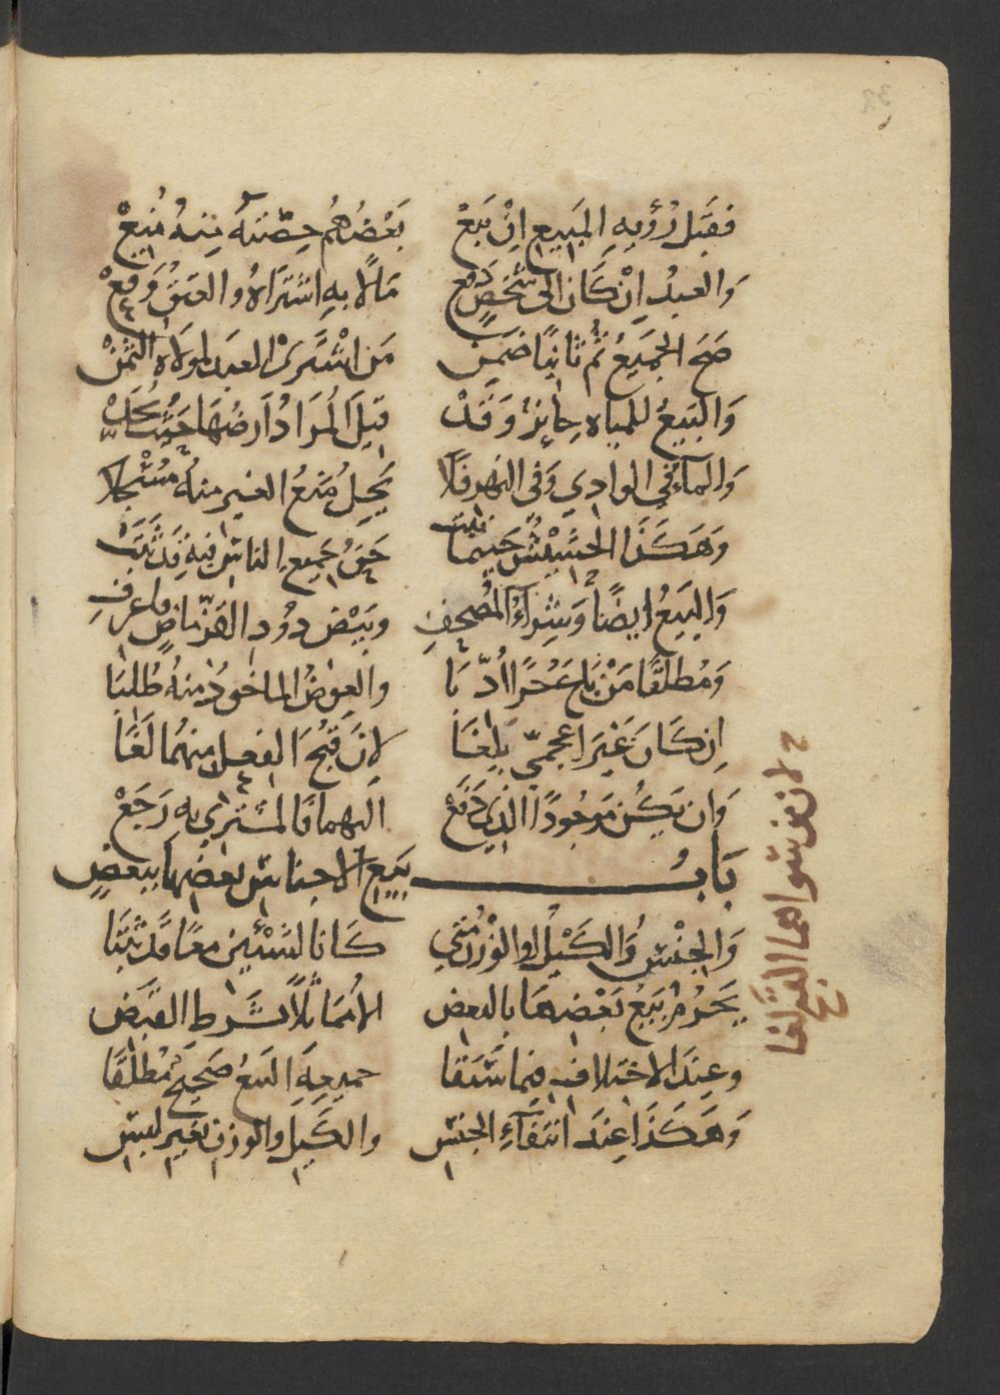 فقبل رؤيه المبيع ان يبع بعضهم حصته منه منع
والعبد ان كان الى شخص دفع مالا به اشتراه والعتق وقع
صح الجميع ثم ثانيا ضمن من اشترى العبد لمولاه الثمن
والبيع للمياه جايز وقد قيل المراد ارضها
والمآء في الوادي وفي النهر فلا يحل منع الغير منه مسجلا
وهكذا الحشيش حيثما نبت حق جميع الناس فيه قد ثبت
والبيع ايضا وشراء المصحف وبيض دود القز ماض
ومطلقا من باع حرا ادبا والعوض الماخوذ منه طلبا
ان كان غير اعجمي بلغا لان قبح الفعل منهما لغا
وان يكن موجودا الذي دفع اليهما فالمشتري به رجع
باب بيع الاجناس بعضها ببعض
والجنس والكيل او الوزن متى كانا لشيئين معا قد ثبتا
يحرم بيع بعضها بالبعض الا مماثلا بشرط القبض
وعند الاختلاف فيما سبقا جميعه البيع صحيح مطلقا
وهكذا عند انتفآء الجنس والكيل والوزن بغير لبس